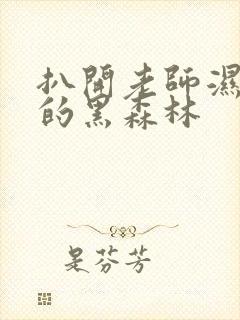 扒開老師濕
的黑森林
是芬芳